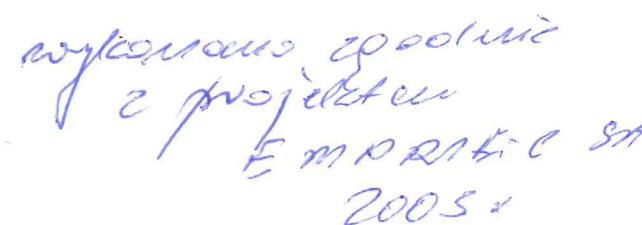 wykonano zgodnie
z projektem
SA
2005 r